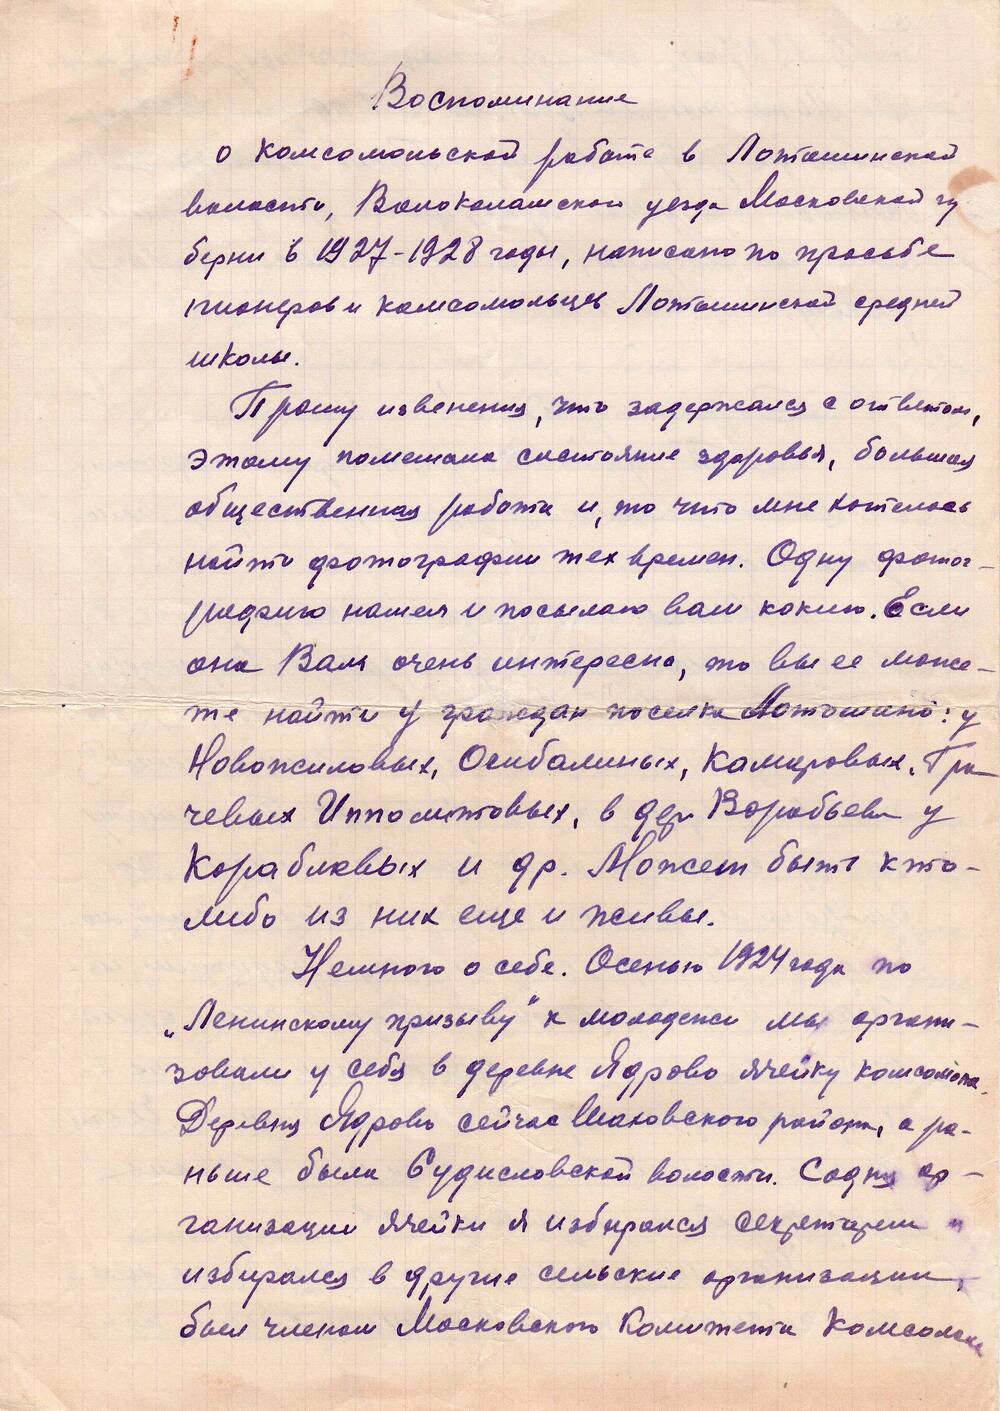 Воспоминание
о комсомольской работе в Лотошинской
волости, Волоколамского уезда Московской гу
берни в 1927-1928 годы, написано по просьбе
пионеров и комсомольцев Лотошинской средней
школы.
Прошу извенения, что задержался с ответом,
этому помешала состояние здоровья, большая
общественная работа и, то что мне хотелось
найти фотографии тех времен. Одну фотог-
рафию нашел и посылаю вам копию. Если
она Вам очень интересна, то вы ее може-
те найти у граждан поселка Лотошино: у
Новожиловых, Осибалиных, Комаровых, Гра
чевых Ипполитовых, в дер Воробьево у
Кораблевых и др. Может быть кто-
либо из них еще и живы.
Немного о себе. Осенью 1924 года по
„Ленинскому призыву" к молодежи мы органи-
зовали у себя в деревне Ядрово ячейку комсомола.
Деревня Ядрово сейчас Шаховского района, а ра-
ньше была Судисловской волости. С дня ор-
ганизации ячейки я избирался секретарем и
избирался в другие сельские организации,
был членом Московского Комитета Комсомола